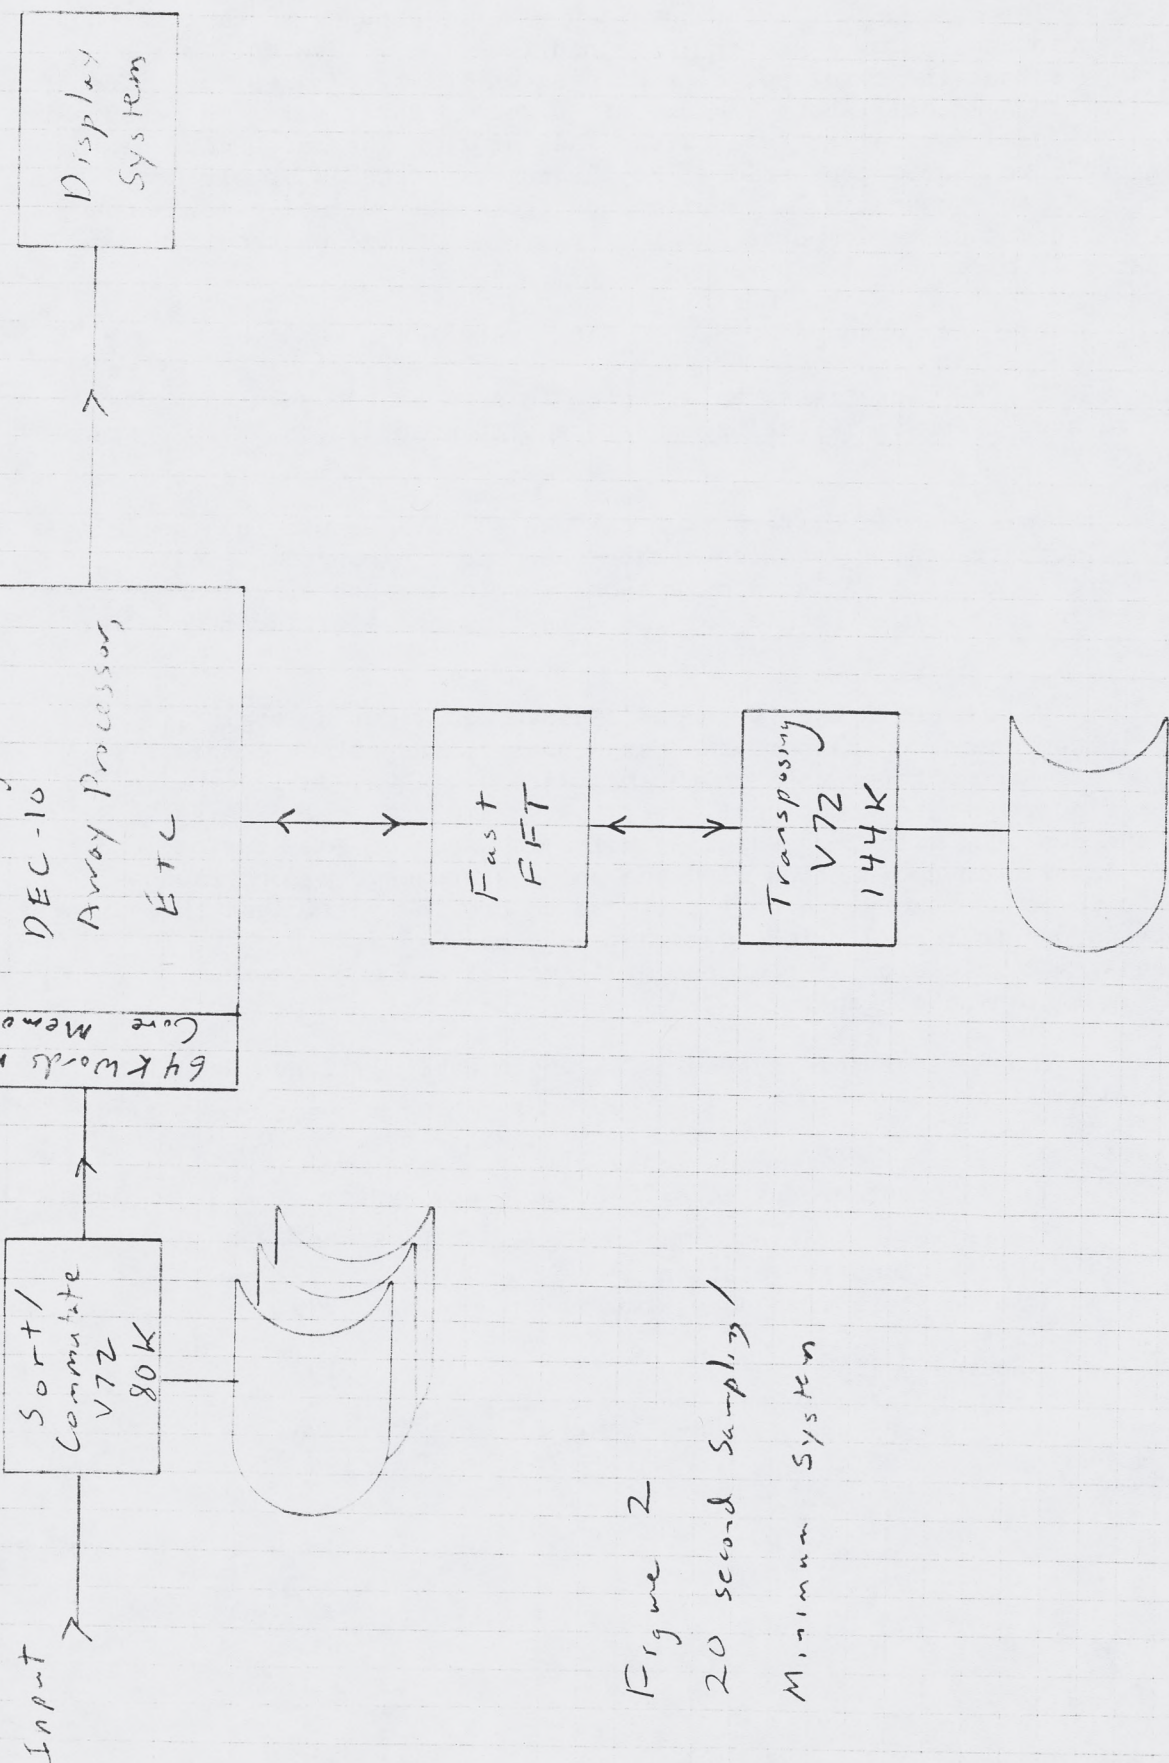 Input
Sort/
Commutate
V72
80K
64K Words
Core
DEC-10
Array Processor,
ETC
Display
System
Fast
FFT
Transposing
V72
144K
Figure 2
20 second Sampling/
Minimum System